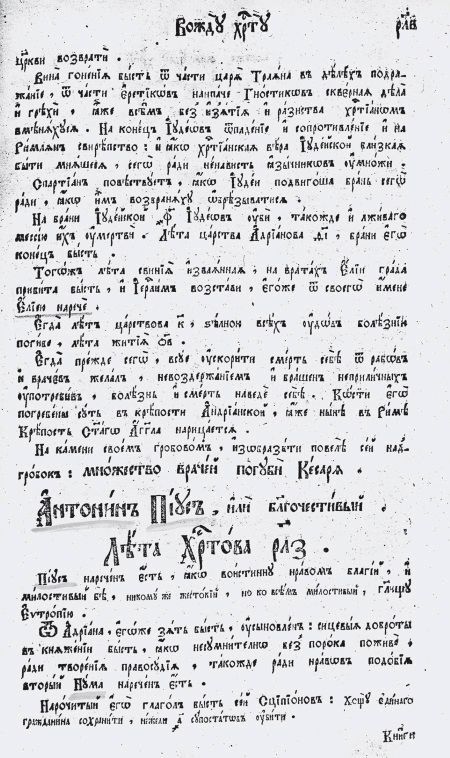 Вождꙋ хрⷭ҇тꙋ рл҃в
цр҃кви возврати̑ .
Вина̀ гоне́нїѧ бы́сть ѿ ча́сти царѧ̀ Траѧ́на въ дѣ́лѣхъ подра-
жа́нїе , ѿ ча́сти є҆рети́кѡвъ наипа́че Гно́стикѡвъ скве́рнаѧ дѣла̀
и҆ грѣхѝ , ꙗ҆̀же всѣ́мъ без̾ и҆зѧ́тїѧ и҆ ра́знства хрⷭ҇тїа́нѡмъ
вмѣнѧ́хꙋсѧ . На коне́цъ І҆ꙋде́ѡвъ ѿпаде́нїе и҆ сопротивле́нїе и҆ на
Ри́млѧнъ свирѣ́пство : и҆ ꙗ҆́кѡ хрⷭ҇тїа́нскаѧ вѣ́ра І҆ꙋде́йской бли́зкаѧ
бы́ти мнѧ́шесѧ , сегѡ̀ ра́ди не́нависть ꙗ҆зы́чникѡвъ ᲂу҆мно́жи .
Спартїа́нъ повѣ́ствꙋетъ , ꙗ҆́кѡ І҆ꙋде́и подвиго́ша бра́нь сегѡ̀
ра́ди , ꙗ҆́кѡ и҆̀мъ возбранѧ́хꙋ ѡ҆брѣ́зыватисѧ .
На бра́ни І҆ꙋде́йской ꙋ҆бѝ , та́кожде и҆ лжи́ваго
мессі́ю и҆́хъ ᲂу҆мертвѝ . Лѣ́та ца́рства А҆дрїа́нова бра́ни є҆гѡ̀
коне́цъ бы́сть .
Тогѡ́жъ лѣ́та свинїѧ̀ и҆зва́ѧннаѧ , на врата́хъ Є҆лі́и гра́да
приби́та бы́сть , и҆ І҆ерⷭ҇ли́мъ возста́ви , є҆го́же ѿ своегѡ̀ и҆́мене
Є҆лі́ею наречѐ .
Є҆гда̀ лѣ́тъ ца́рствова к҃ , ѕѣ́лною всѣ́хъ ᲂу҆́дѡвъ болѣ́знїю
поги́бе , лѣ́та житїѧ̀ ѻ҃в .
Є҆гда̀ пре́жде сегѡ̀ , всꙋ́е ᲂу҆скори́ти сме́рть себѣ̀ ѿ рабѡ́въ
и҆ враче́въ жела́лъ , невоздержа́нїемъ и҆ бра́шенъ неприли́чныхъ
ᲂу҆потреби́въ , болѣ́знь и҆ сме́рть наведѐ себѣ̀ . Кѡ́сти є҆гѡ̀
погребе́ны сꙋ́ть въ крѣ́пости А҆ндрїа́нской , ꙗ҆́же ны́нѣ въ Ри́мѣ
Крѣ́пость Ст҃а́гѡ А҆́гг҃ла нарица́етсѧ .
На ка́мени свое́мъ гробово́мъ , и҆з̾ѡбрази́ти повелѣ̀ се́й над-
гро́бокъ : мно́жество враче́й погꙋбѝ Ке́сарѧ .
А҆нтони́нъ Пі́ꙋсъ , и҆лѝ благочести́вый .
Лѣ́та Хрⷭ҇то́ва рл҃з .
Пі́ꙋсъ нарече́нъ є҆́сть , ꙗ҆́кѡ вои́стиннꙋ нра́вомъ благі́й , и҆
милостивый бѣ̀ , никомꙋже жестокій , но ко всѣмъ милостивый , гл҃ющꙋ
Еѵтро́пїю .
Ѿ А҆дрїа́на , є҆гѡ́же зѧ́ть бы́сть , ᲂу҆сыновле́нъ : сицевы́ѧ добро́ты
въ кнѧже́нїи бы́сть , ꙗ҆́кѡ несꙋмни́телнѡ без̾ поро́ка пожива̀ ,
ра́ди творе́нїѧ правосꙋ́дїѧ , та́кожде ра́ди нра́вѡвъ подо́бїѧ
вторы́й Нꙋ́ма нарече́нъ є҆́сть .
Нарочи́тый є҆гѡ̀ глаго́лъ бы́сть се́й Сципїо́новъ : Хощꙋ̀ є҆ди́наго
гражданина сохранити , нежели сꙋпостатѡвъ ᲂу҆бити .
Кни́ги